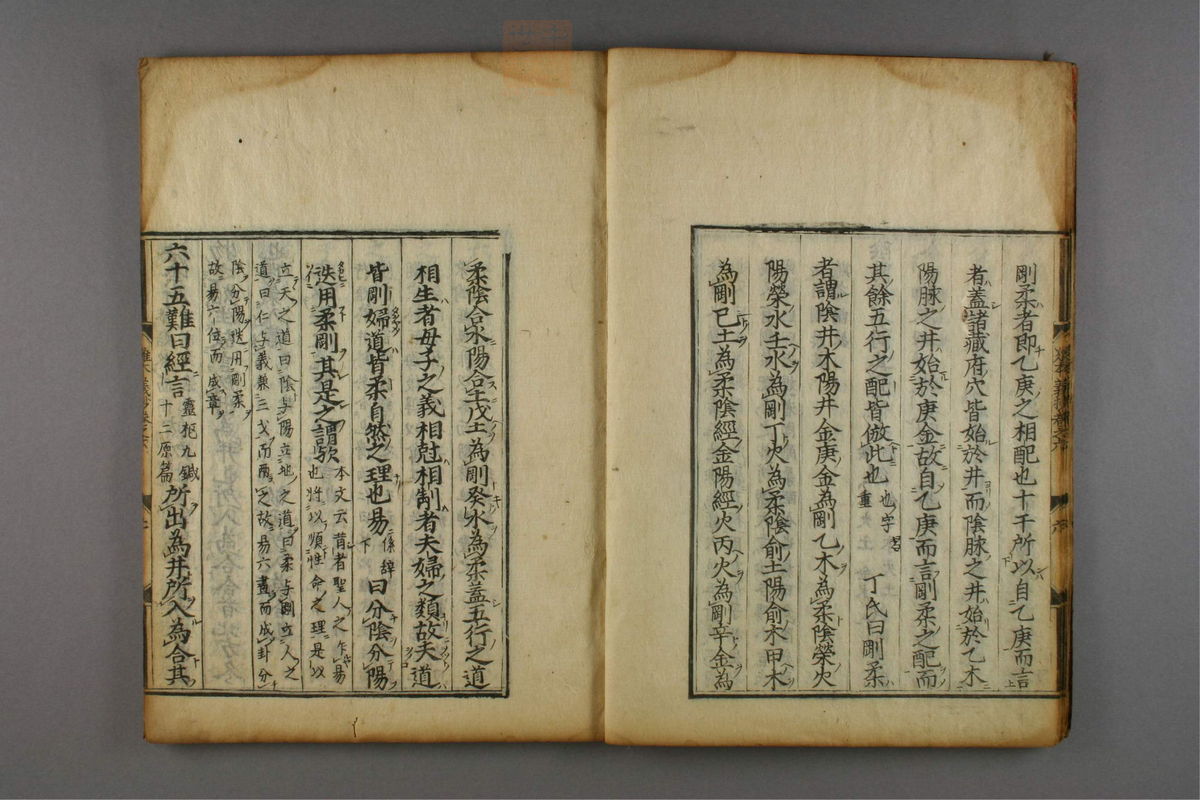 剛柔者即乙庚之相配也十干所以自乙庚而言
者蓋諸藏府穴皆始於井而陰脉之井始於乙木
陽脉之井始於庚金故自乙庚而言剛柔之配而
其餘五行之配皆倣此也 也字 重 丁氏曰剛柔
者謂陰井木陽井金庚金為剛乙木為柔陰榮火
陽榮水壬水為剛丁火為柔陰俞土陽俞木甲木
為剛已土為柔陰經金陽經火丙火為剛辛金為
柔陰合水陽合土戊土為剛癸水為柔蓋五行之道
相生者母子之義相尅相制者夫婦之類故夫道
皆剛婦道皆柔自然之理也易係辞下曰分陰分陽
迭用柔剛其是之謂欤 本文云昔者聖人之作易
也将以順性命之理是以
立天之道曰陰与陽立地之道曰柔与剛立人之
道曰仁与義兼三才而兩之故易六畫而成卦分
陰分陽迭用剛柔
故易六位而成章
六十五難曰經言 靈枢九鍼
十二原篇 所出為井所入為合其